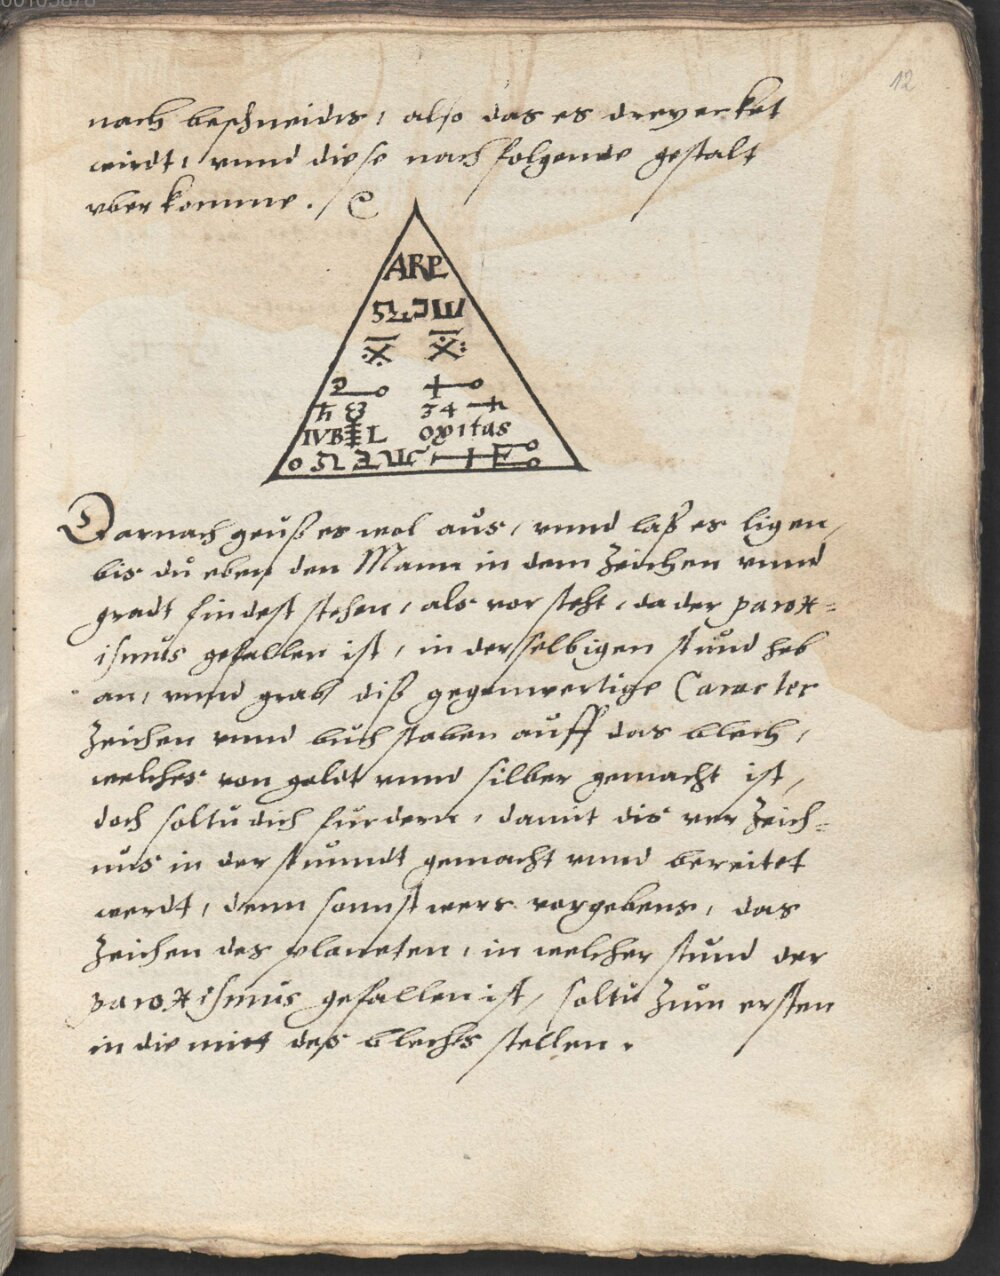 12
nach beschneidis, also das es dreyecket
wirdt, vnnd diese nachfolgende gestalt
vberkomme.
ARE
IVB L
34
Darnach geuß es wol aus, vnnd laß es ligen,
bis du eben den Mann in dem Zeichen vnnd
gradt findest stehen, als vor steht, da der parox=
ismus gefallen ist, in der selbigen stund heb
an, vnnd grab diß gegenwertige Caracter
Zeichen vnnd buchstaben auff das blech,
welches von goldt vnnd silber gemacht ist,
doch soltu dich furdern, damit dis verzeich=
nus in der stunndt gemacht vnnd bereitet
werdt, denn sonnst wers vergebens, das
Zeichen des planeten, in welcher stund der
paroxismus gefallen ist, soltu Zum ersten
in die mitt deß blechs stellen.